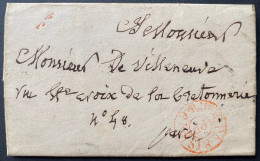 A Monsieur
Monsieur De Villeneuve
rue Ste croix de la Bretonnerie
n° 48.
paris